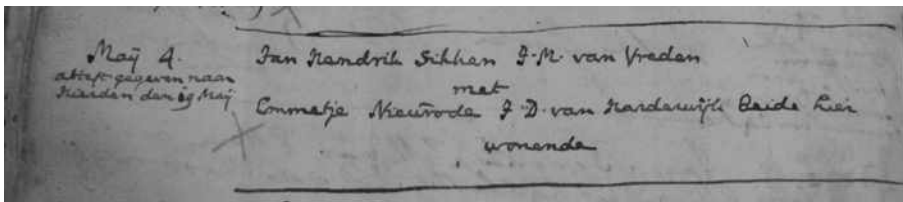 Maij 4.
attest gegeven naar
Hierden den 19 Maij
Jan Hendrik Sikken J. M. van Vreden
met
Emmetje Nieuwrode J. D. van Harderwijk beide hier
wonende